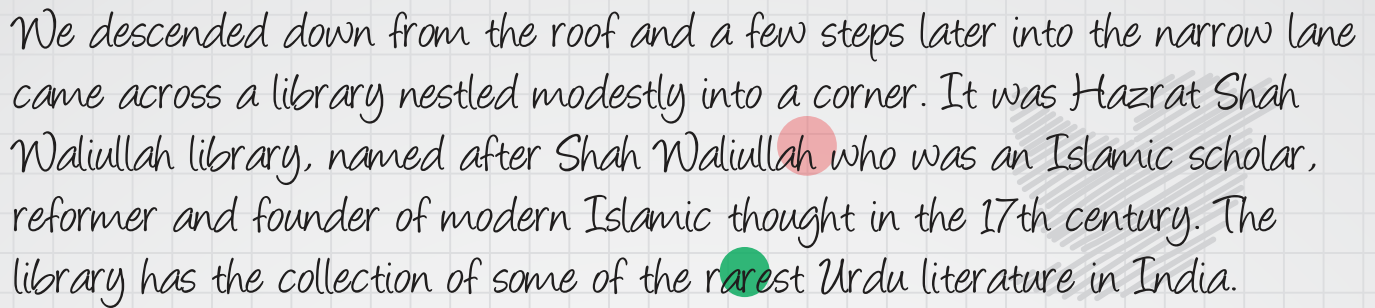 We descended down from the roof and a few steps later into the narrow lane
came across a library nestled modestly into a corner. It was Hazrat Shah
Waliullah library, named after Shah Waliullah who was an Islamic scholar,
reformer and founder of modern Islamic thought in the 17th century. The
library has the collection of some of the rarest Urdu literature in India.